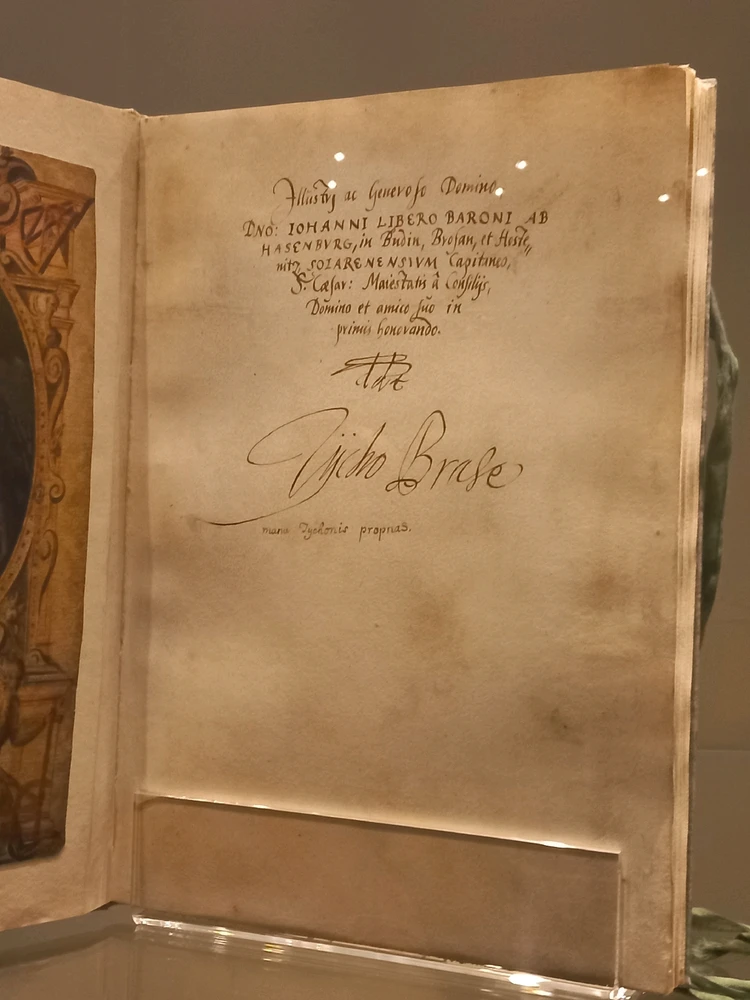 Illustri ac Generoso Domino,
DNO: IOHANNI LIBERO BARONI AB
HASENBVRG, in Budin, Brosan, et Hoste„
nitz SOLARENENSIVM Capitaneo,
S. Cæsar: Maiestatis â Consilijs,
Domino et amico suo in
primis honorando.
Tycho Brahe
manu Tychonis propriâ.